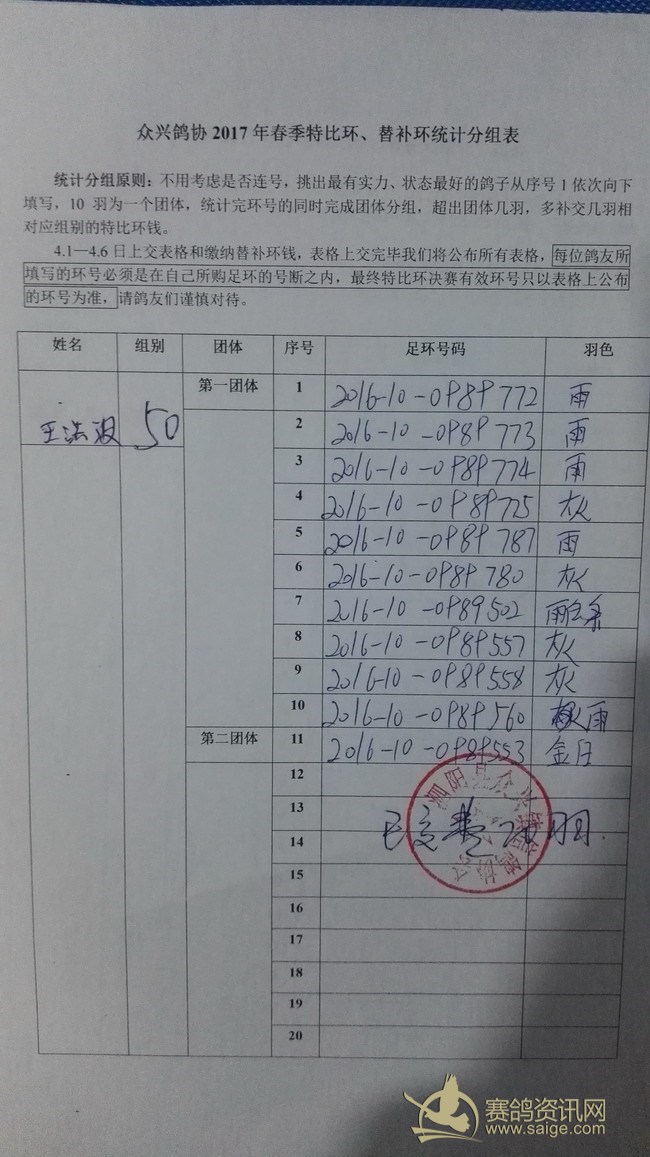 众兴鸽协 2017 年春季特比环、替补环统计分组表
统计分组原则：不用考虑是否连号，挑出最有实力、状态最好的鸽子从序号 1 依次向下
填写，10 羽为一个团体，统计完环号的同时完成团体分组，超出团体几羽，多补交几羽相
对应组别的特比环钱。
4.1—4.6 日上交表格和缴纳替补环钱，表格上交完毕我们将公布所有表格，每位鸽友所
填写的环号必须是在自己所购足环的号断之内，最终特比环决赛有效环号只以表格上公布
的环号为准，请鸽友们谨慎对待。
姓名 组别 团体 序号 足环号码 羽色
第一团体 1 2016-10-0989772 雨
王 50 2 2016-10-0989773 雨
3 2016-10-0989774 雨
4 2016-10-0989775 灰
5 2016-10-0989787 雨
6 2016-10-0989780 灰
7 2016-10-0989502 雨
8 2016-10-0989557 灰
9 2016-10-0989558 灰
10 2016-10-0989560 雨
第二团体 11 2016-10-0989553
12
13
14
15
16
17
18
19
20
泗阳县众兴镇信鸽协会
赛鸽资讯网
www.saige.com